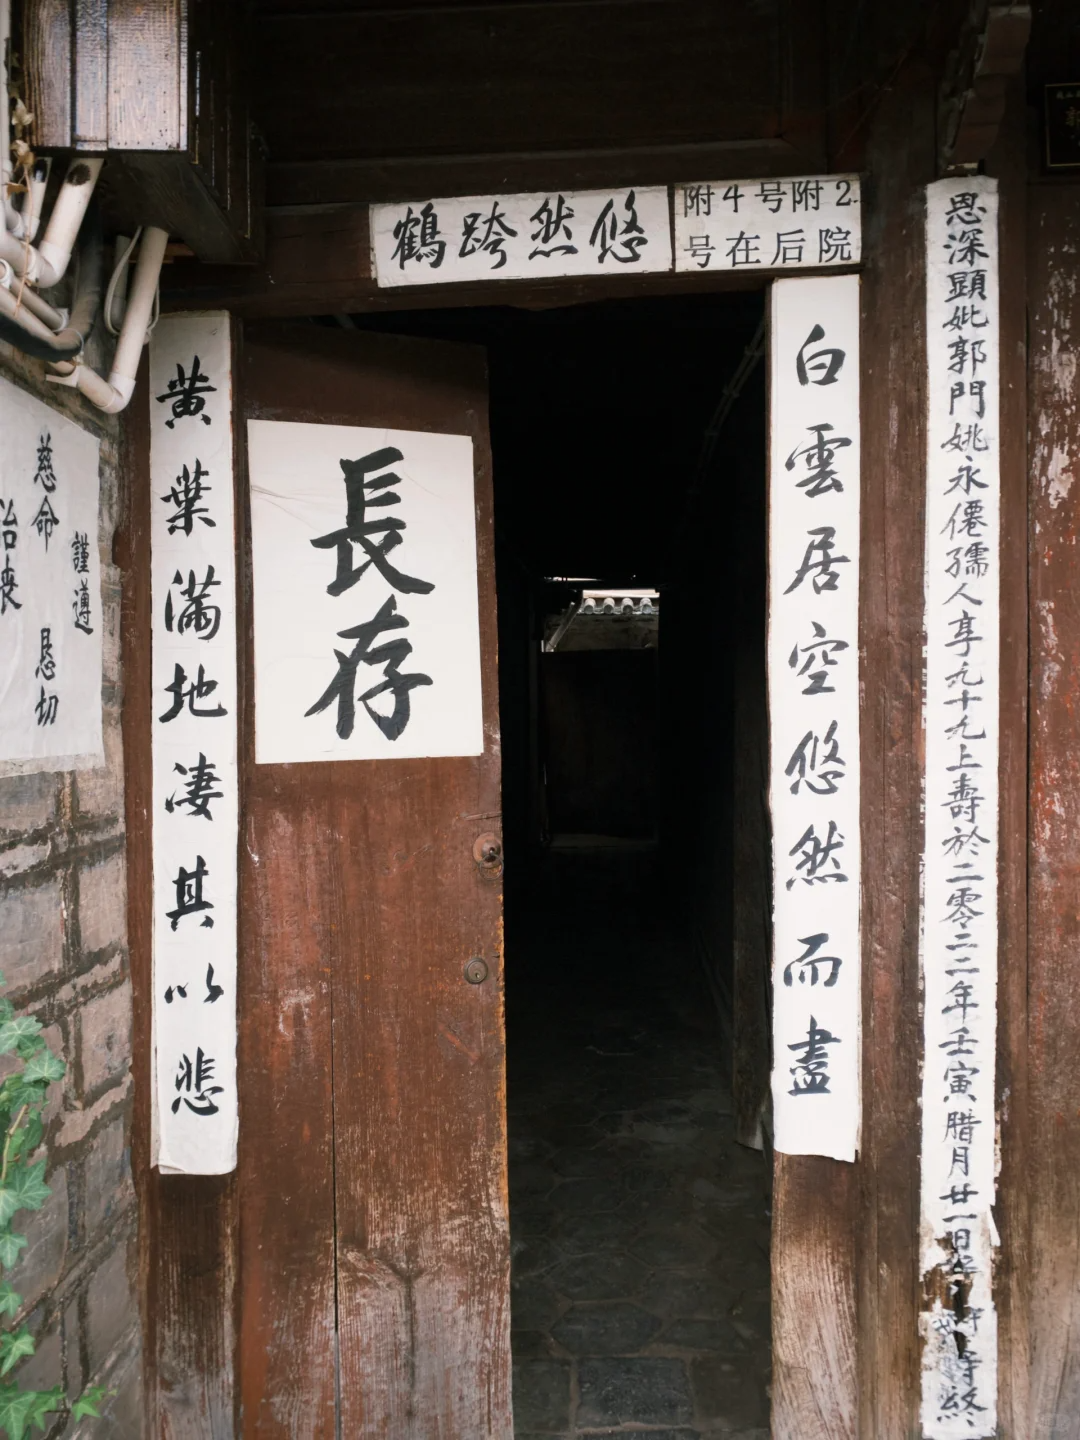 恩深顯妣郭門姚永僊孺人享九十九上壽於二零二二年壬寅腊月廿一日
時終
附4号附2
号在后院
悠然跨鶴
白雲居空悠然而盡
長存
黄葉滿地凄其以悲
謹遵
慈命 恳切
治喪